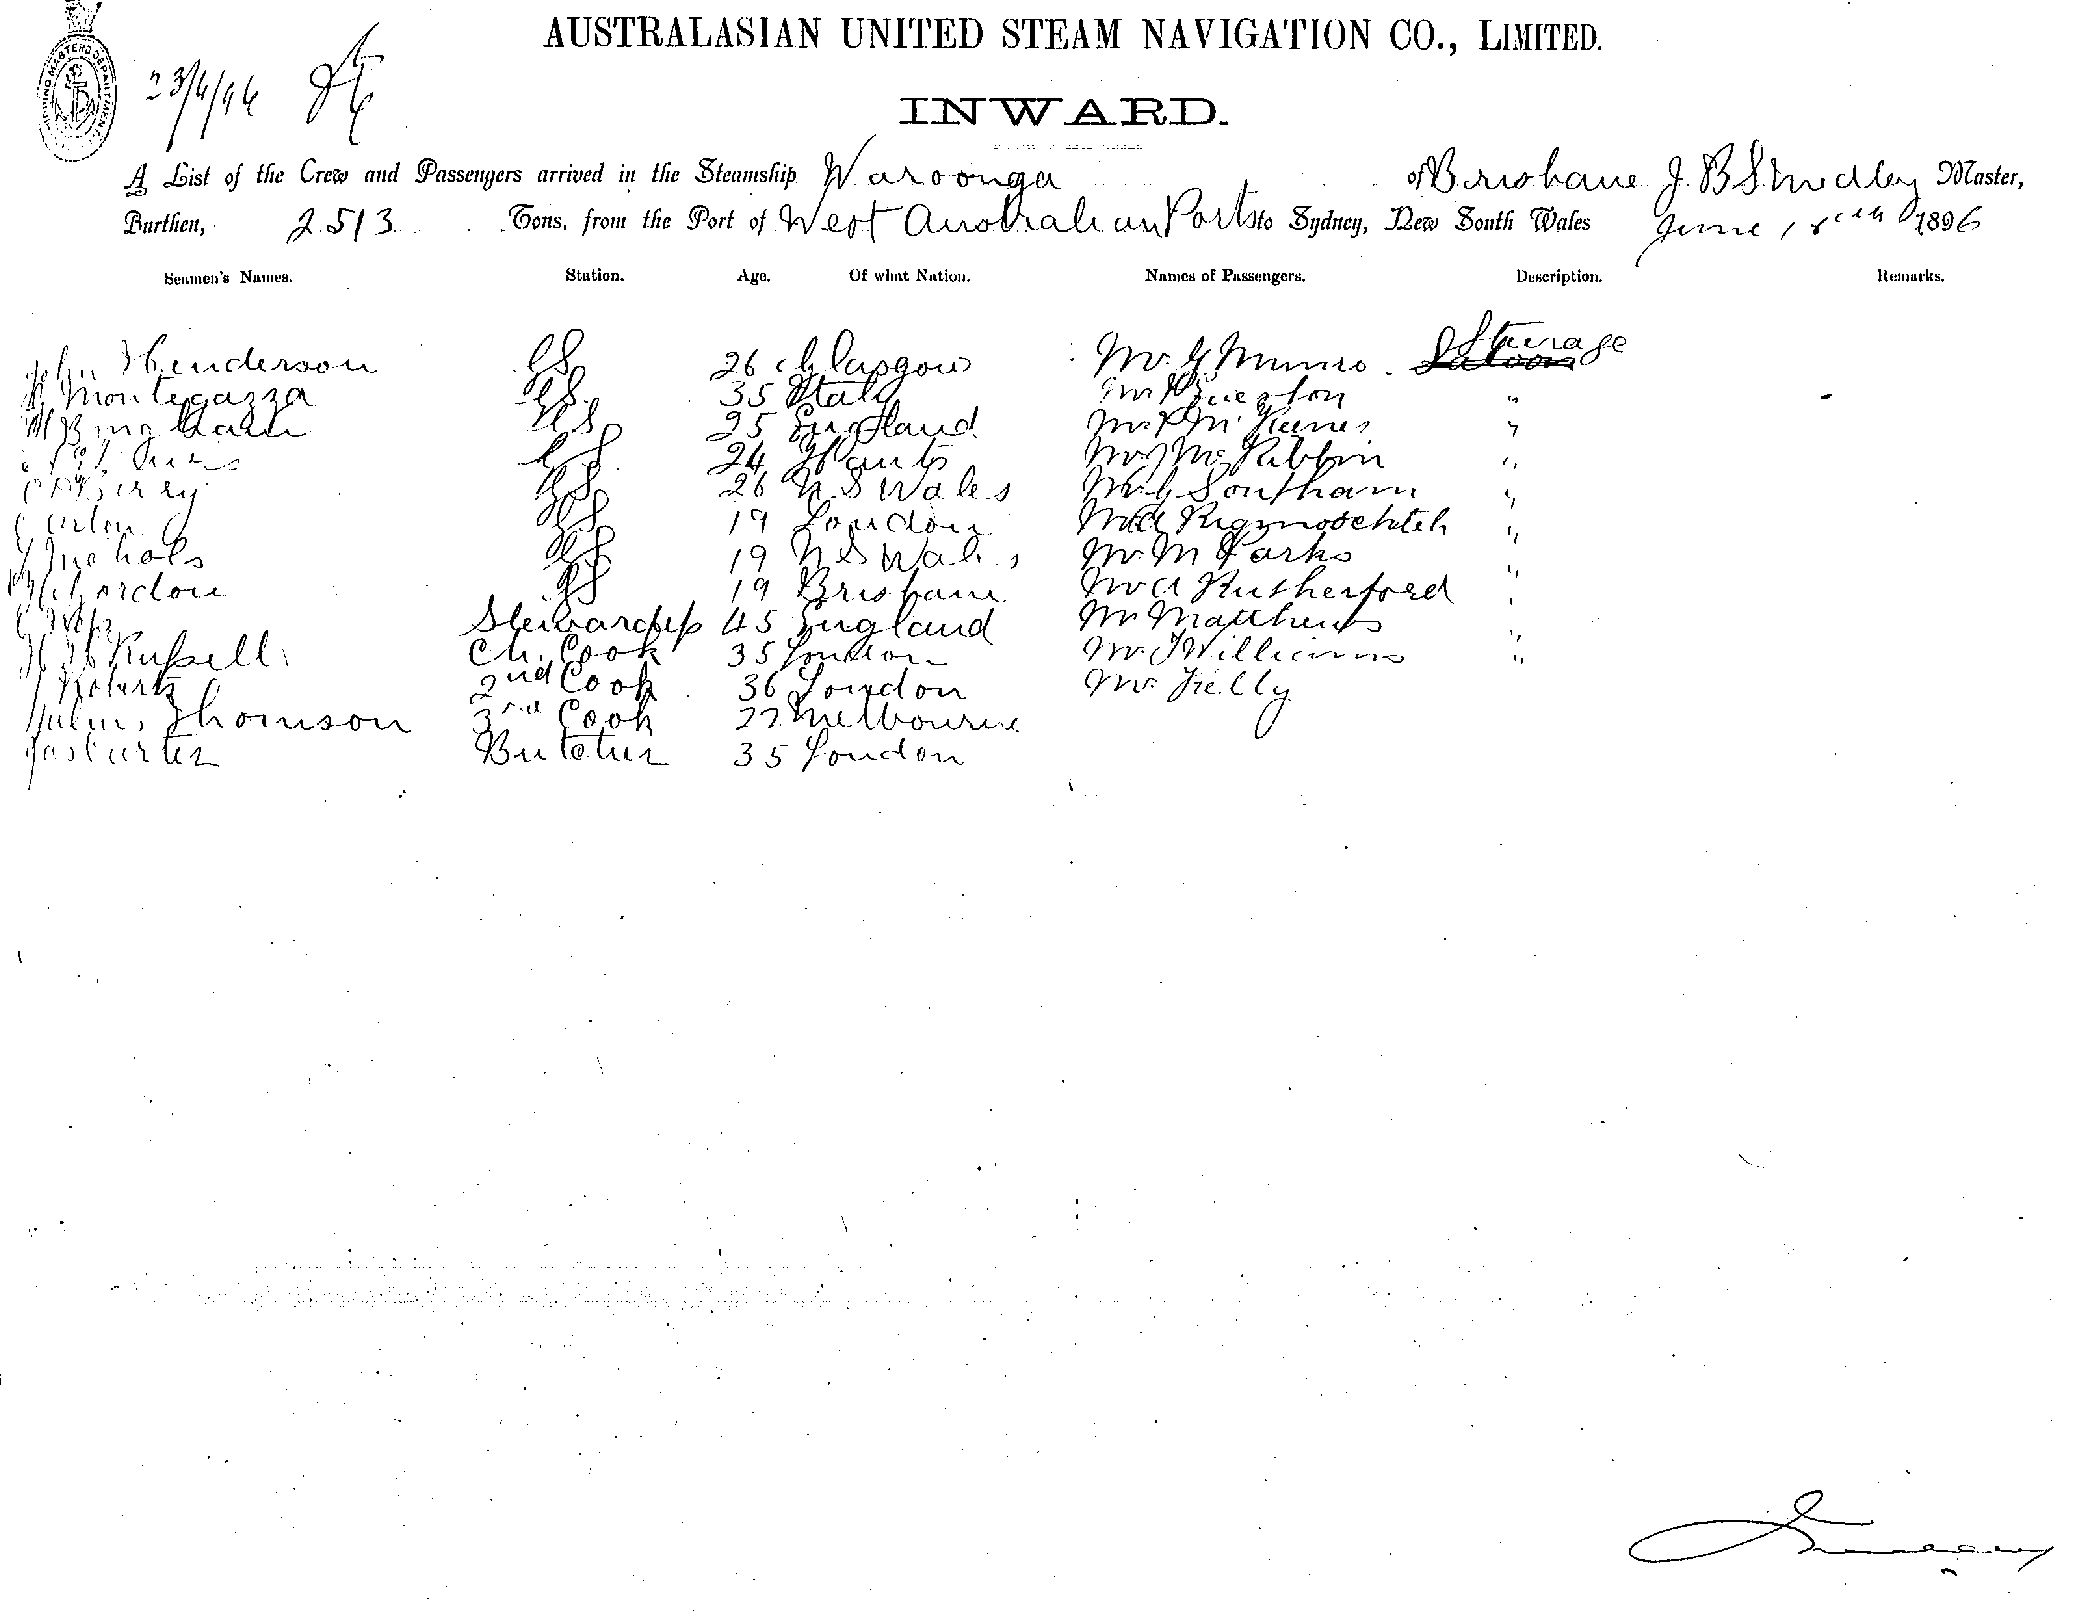 AUSTRALASIAN UNITED STEAM NAVIGATION CO., LIMITED.
23/6/96
INWARD.
A List of the Crew and Passengers arrived in the Steamship Waroonga of Brisbane J. B Smedley Master,
Burthen, 2513 Tons, from the Port of West Australian Ports to Sydney, New South Wales June 18th 1896
Seamen's Names. Station. Age. Of what Nation. Names of Passengers. Description. Remarks.
John Henderson GS 26 Glasgow Mr G Munro Steerage Saloon
Montegazza GS 35 Italy Mr "
Bingham GS 25 England Mr "
GS 24 Hants Mr J McKibbin "
Berry GS 26 N S Wales Mr G Southam "
GS 19 London Mr "
Nichols GS 19 N S Wales Mr M Parks "
GS 19 Brisbane Mr A Rutherford "
Stewardess 45 England Mr Matthews "
Russell Ch. Cook 35 London Mr J Williams "
Roberts 2nd Cook 36 London Mr Kelly
Thomson 3rd Cook 22 Melbourne
Jas Carter Butcher 35 London